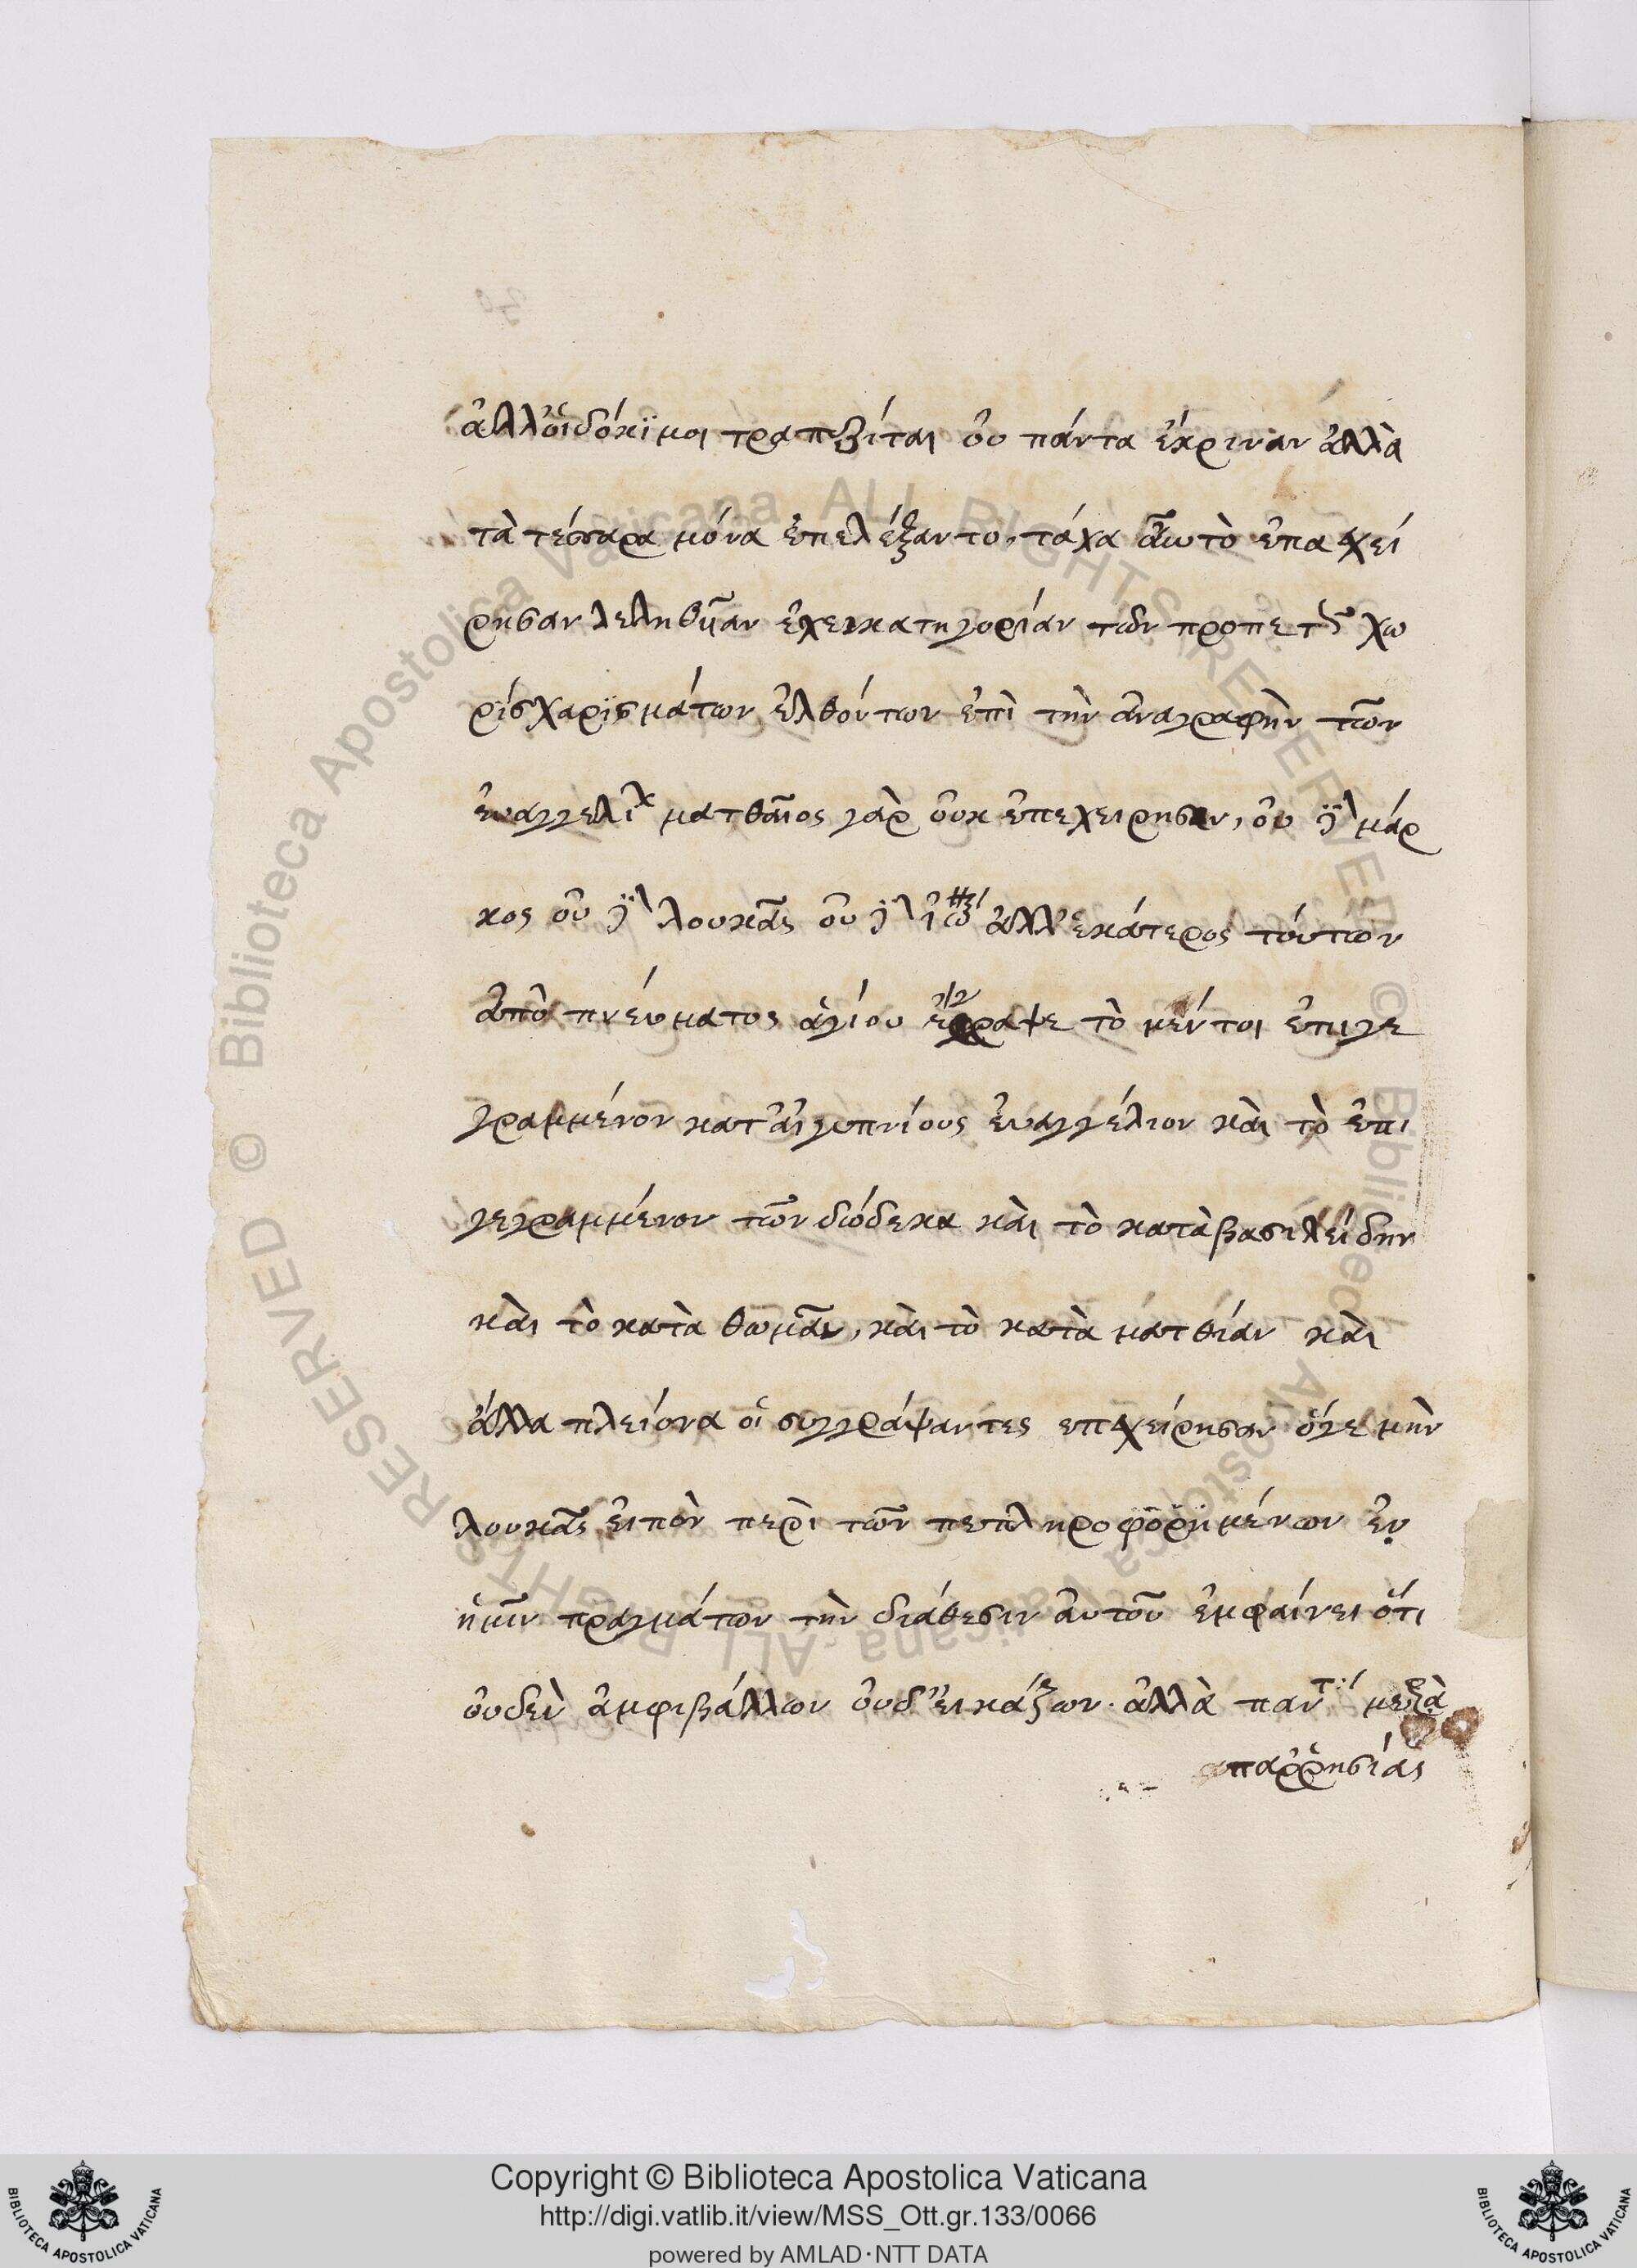 ἀλλ' οἱ δόκϊμοι τραπεζίται οὐ πάντα ἔκριναν ἀλλὰ
τὰ τέσσαρα μόνα ἐπελέξαντο, τάχα τὸ ἐπεχεί
ρησαν λεληθῦαν ἔχει κατηγορίαν τῶν προπετ χω
ρίς χαρϊσμάτων ἐλθόντων ἐπὶ τὴν ἀναγραφὴν τῶν
ἐυαγγελι ματθαῖος γὰρ οὐκ ἐπεχειρησεν, οὐ μάρ
κος οὐ λουκᾶς οὐ ἀλλ' ἑκάτερος τούτων
ἀπὸ πνεύματος ἁγίου ἔγραψε τὸ μέντοι ἐπιγε
γραμμένον κατ' ἀιγυπτίους ἐυαγγέλιον κὰι τὸ ἐπι
γεγραμμένον τῶν δώδεκα κὰι τὸ κατὰ βασιλείδην
κὰι τὸ κατὰ θωμᾶν, κὰι τὸ κατὰ ματθίαν κὰι
ἄλλα πλείονα οἱ συγγράψαντες επεχείρησαν ὅγε μὴν
λουκᾶς ἐιπὸν περὶ τῶν πεπληροφορημένων ἐν
ἡμῖν πραγμάτων τὴν διάθεσιν ἀυτοῦ ἐμφαίνει ὅτι
ὀυδεν ἀμφιβάλλων ὀυδ' ἐικάζων. ἀλλὰ παν μετὰ
παῤῥησίας
Copyright © Biblioteca Apostolica Vaticana
http://digi.vatlib.it/view/MSS_Ott.gr.133/0066
powered by AMLAD·NTT DATA
BIBLIOTECA APOSTOLICA VATICANA
BIBLIOTECA APOSTOLICA VATICANA